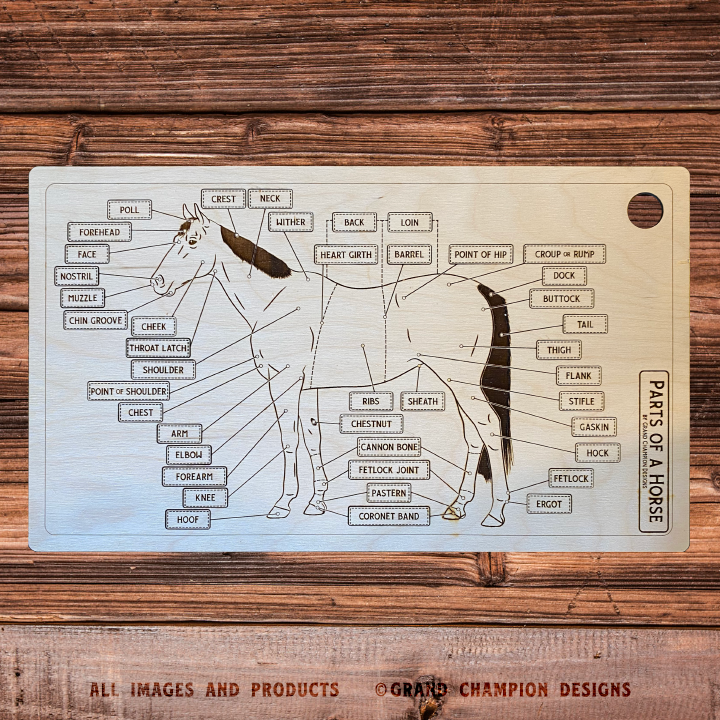 CREST
NECK
POLL
WITHER
BACK
LOIN
FOREHEAD
FACE
HEART GIRTH
BARREL
POINT OF HIP
CROUP OR RUMP
NOSTRIL
DOCK
MUZZLE
BUTTOCK
CHIN GROOVE
CHEEK
TAIL
THROAT LATCH
THIGH
SHOULDER
FLANK
POINT OF SHOULDER
RIBS
SHEATH
STIFLE
CHEST
CHESTNUT
GASKIN
ARM
CANNON BONE
HOCK
ELBOW
FETLOCK JOINT
FOREARM
FETLOCK
KNEE
PASTERN
ERGOT
HOOF
CORONET BAND
PARTS OF A HORSE
BY GRAND CHAMPION DESIGNS
ALL IMAGES AND PRODUCTS ©GRAND CHAMPION DESIGNS